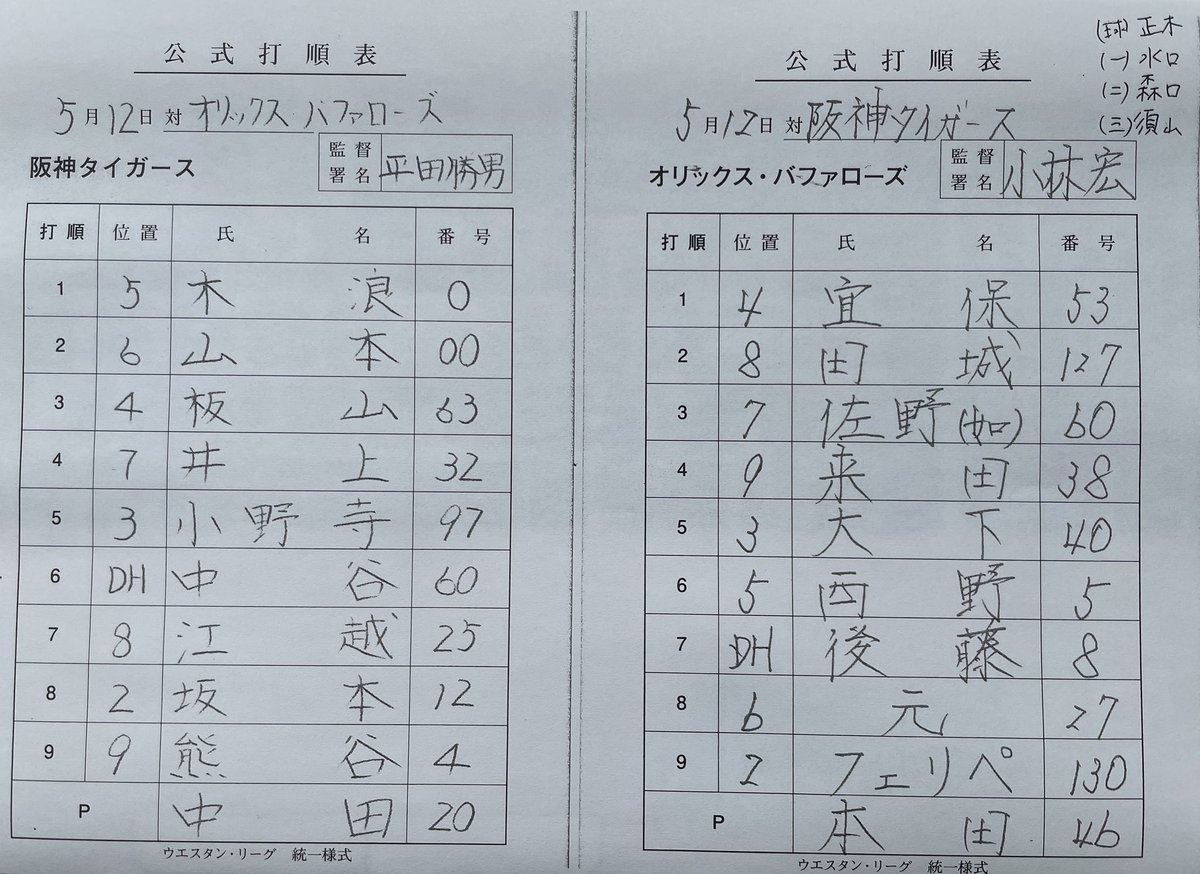 公式打順表
5月12日 対 オリックス バファローズ
阪神タイガース 監督署名 平田勝男
打順 位置 氏名 番号
1 5 木浪 0
2 6 山本 00
3 4 板山 63
4 7 井上 32
5 3 小野寺 97
6 DH 中谷 60
7 8 江越 25
8 2 坂本 12
9 9 熊谷 4
P 中田 20
ウエスタン・リーグ 統一様式
(球) 正木
(一) 水口
(二) 森口
(三) 須山
公式打順表
5月12日 対 阪神タイガース
オリックス・バファローズ 監督署名 小林宏
打順 位置 氏名 番号
1 4 宜保 53
2 8 田城 127
3 7 佐野(如) 60
4 9 来田 38
5 3 大下 40
6 5 西野 5
7 DH 後藤 8
8 6 元 27
9 2 フェリペ 130
P 本田 46
ウエスタン・リーグ 統一様式